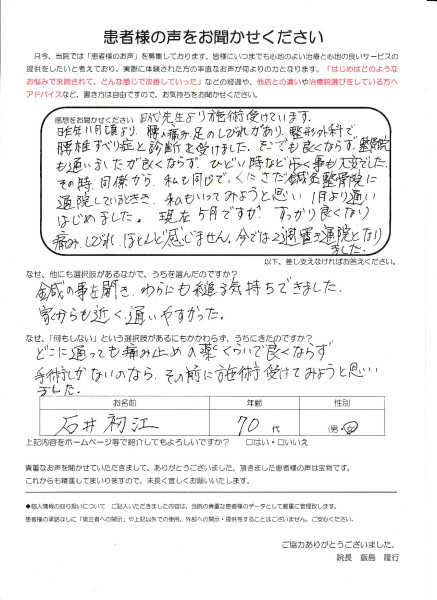 患者様の声をお聞かせください
只今、当院では「患者様のお声」を募集しております。皆様にいつまでも心地のよい治療と心地の良いサービスの
提供をしたいと考えており、実際に体験された方の率直なお声が何よりの力となります。「はじめはどのような
お悩みで来院されて、どんな感じで改善していった」などの経緯や、他店との違いや治療院選びをしている方へ
アドバイスなど、書き方は自由ですので、お気持ちをお聞かせください。
感想をお聞かせください 先生より施術受けています。
昨年11月頃より、腰の痛み、足のしびれがあり、整形外科で
腰椎すべり症と診断を受けました。そこでも良くならず、整骨院
も通いましたが良くならず、ひどい時など歩く事も大変でした。
その時、同僚から、私も同じで、くにさだ鍼灸整骨院に
通院しているときき、私もいってみようと思い 1月より通い
はじめました。現在5月ですが、すっかり良くなり
痛み、しびれ、ほとんど感じません。今では2週置き通院となり
ました。
以下、差し支えなければお答えください。
なぜ、他にも選択肢があるなかで、うちを選んだのですか？
鍼の事を聞き、わらにも縋る気持ちできました。
家からも近く、通いやすかった。
なぜ、「何もしない」という選択肢があるにもかかわらず、うちにきたのですか？
どこに通っても痛み止めの薬くらいで良くならず
手術しかないのなら、その前に施術受けてみようと思い
ました。
お名前 年齢 性別
石井 初江 70代 （男・女）
上記内容をホームページ等で紹介してもよろしいですか？ □はい・□いいえ
貴重なお声を聞かせていただきまして、ありがとうございました。頂きました患者様の声は宝物です。
これからも精進してまいりますので、末長く宜しくお願いいたします。
●個人情報の取り扱いについて ご記入いただきました内容は、当院の貴重な患者様のデータとして厳重に管理致します。
患者様の承諾なしに「第三者への開示」や上記以外での使用、外部への開示・提供等することはございません。ご安心ください。
ご協力ありがとうございました。
院長 飯島 隆行